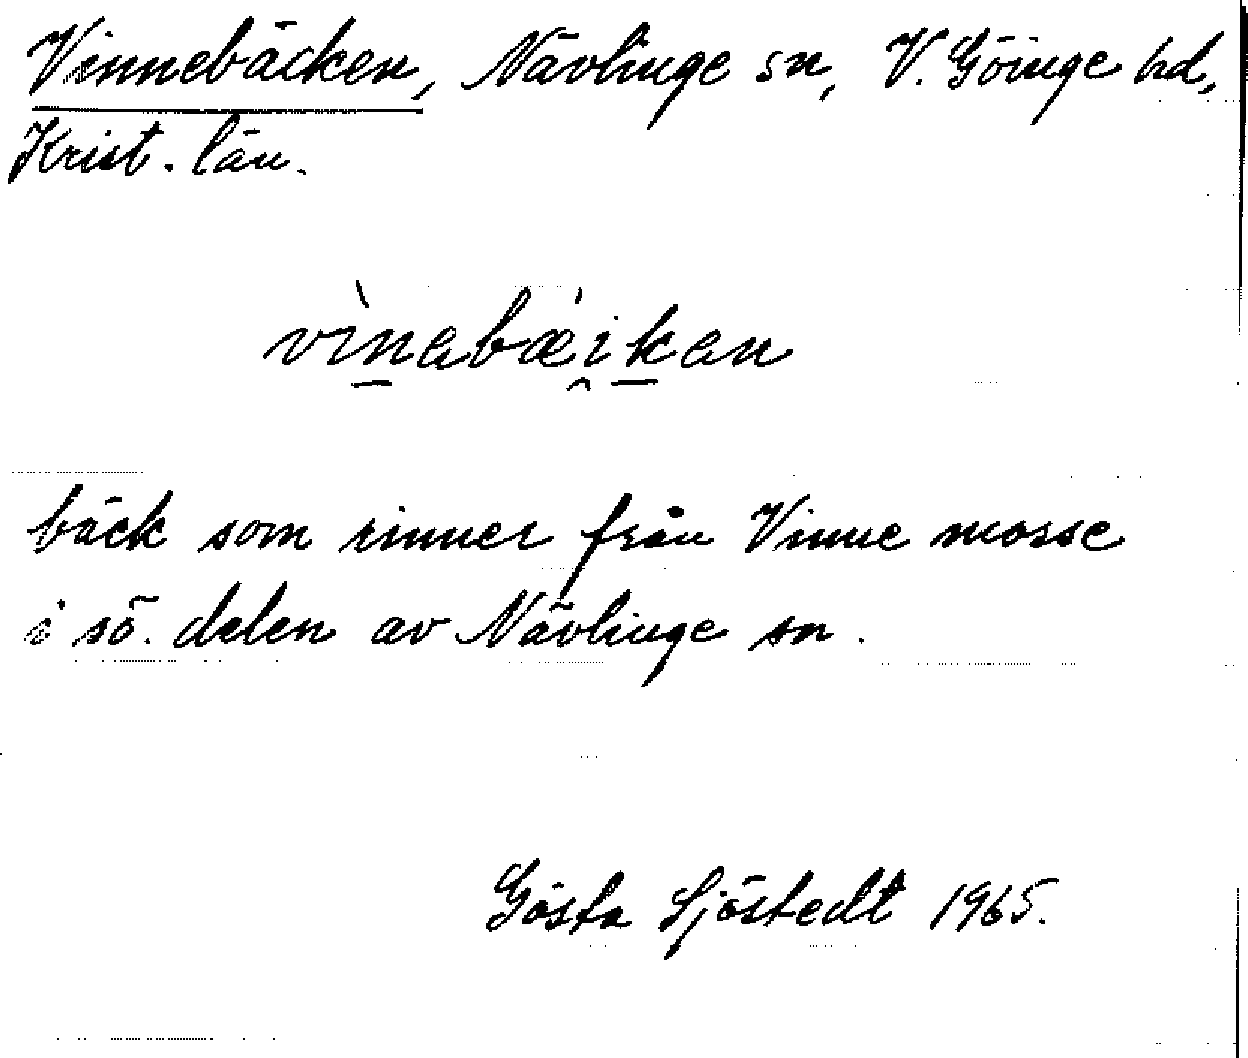 Vinnebäcken, Nävlinge sn, V. Göinge hd,
Krist. län.
vìn̠abæ̍i̯k̠an
bäck som rinner från Vinne mosse
i sö. delen av Nävlinge sn.
Gösta Sjöstedt 1965.